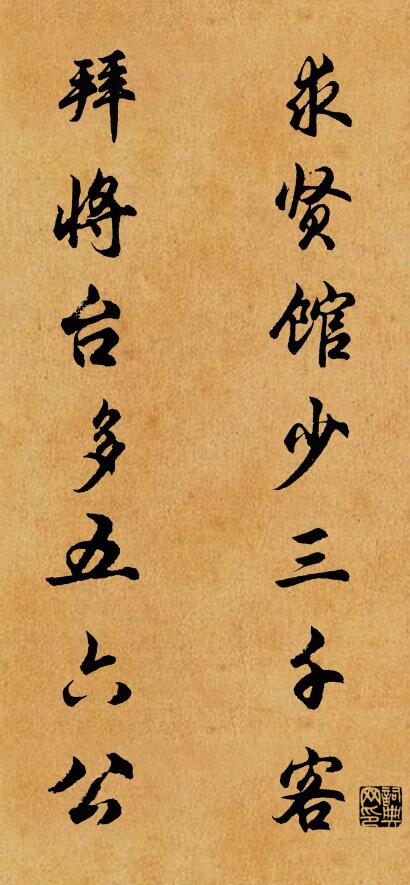 求贤馆少三千客
拜将台多五六公
詞典网印